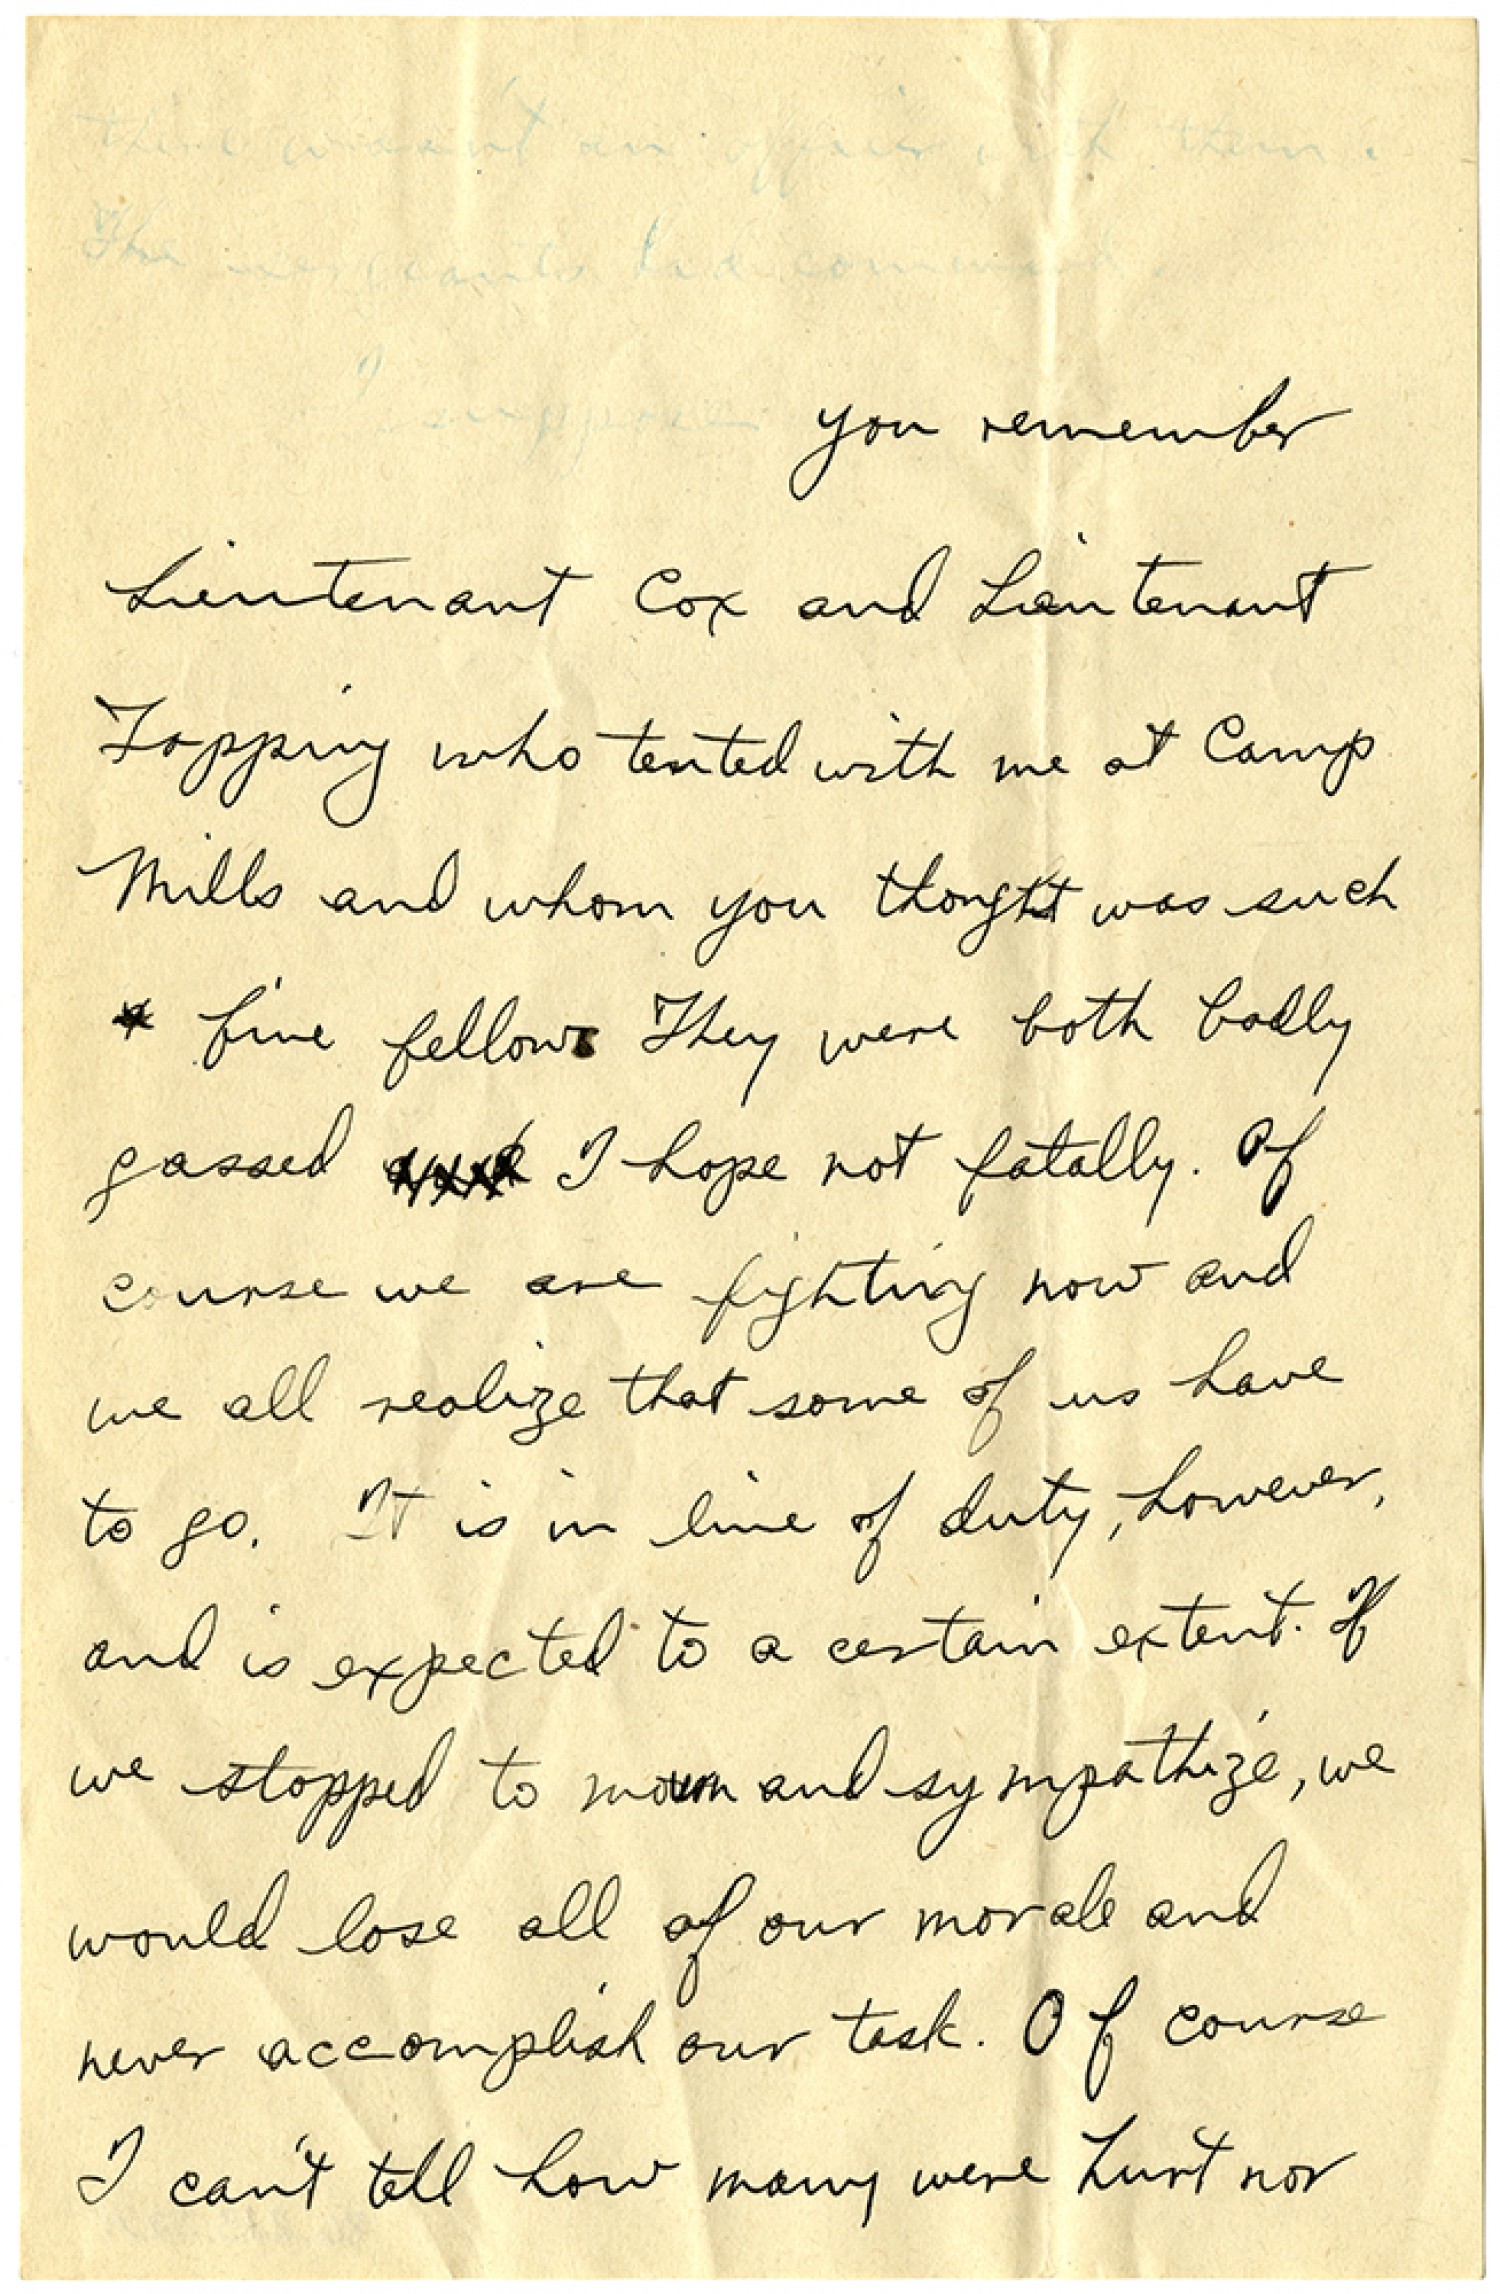 there wasn't an officer with them.
The sergeants had command
I suppose
you remember
Lieutenant Cox and Lieutenant
Topping who tented with me at Camp
Mills and whom you thought was such
a fine fellow They were both badly
gassed I hope not fatally. Of
course we are fighting now and
we all realize that some of us have
to go. It is in line of duty, however,
and is expected to a certain extent. If
we stopped to mourn and sympathize, we
would lose all of our morale and
never accomplish our task. Of course
I can't tell how many were hurt nor